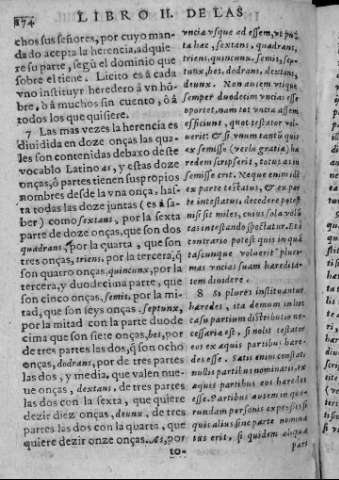 874
LIBRO II. DE LAS
chos sus señores, por cuyo man-
dado acepta la herencia, adquie
re su parte, segũ el dominio que
sobre el tiene. Licito es à cada
vno instituyr heredero à vn hõ-
bre, ò à muchos sin cuento, ò à
todos los que quisiere.
7 Las mas vezes la herencia es
diuidida en doze onças las qua-
les son contenidas debaxo deste
vocablo Latino as, y estas doze
onças, ò partes tienen sus propios
nombres desde la vna onça, has-
ta todas las doze juntas (es à sa-
ber) como sextans, por la sexta
parte de doze onças, que son dos
quadrans, por la quarta, que son
tres onças, triens, por la tercera, q̃
son quatro onças, quincunx, por la
tercera, y duodecima parte, que
son cinco onças, semis, por la mi-
tad, que son seys onças, septunx,
por la mitad con la parte duode
cima que son siete onças, bes, por
de tres partes las dos, q̃ son ocho
onças, dodrans, por de tres partes
las dos, y media, que valen nue-
ue onças, dextans, de tres partes
las dos con la sexta, que quiere
dezir diez onças, deunx, de tres
partes las dos con la quarta, que
quiere dezir onze onças. As, por
vncia vsque ad assem, vt puta
hæc, sextans, quadrans,
triens, quincunx, semis, sep-
tunx, bes, dodrans, dextans,
deunx. Non autem vtique
semper duodecim vncias esse
oportet, nam tot vncia assem
efficiunt, quot testator vol-
uerit: & si vnum tantùm quis
ex semisse (verbi gratia) hæ-
redem scripserit, totus as in
semisse erit. Neque enim idẽ
ex parte testatus, & ex par
te intestatus, decedere potest
nisi sit miles, cuius sola volũ
tas in testando spectatur. Et è
contrario potest quis in quã-
tascunque voluerit pluri-
mas vncias suam hæredita-
tem diuidere.
8 Si plures instituantur
hæredes, ita demum in hoc
casu partium distributio ne-
cessaria est, si nolit testator
eos ex æquis partibus hære-
des esse. Satis enim constat,
nullis partibus nominatis, ex
æquis partibus eos hæredes
esse. Partibus autem in quo-
rundam personis expressis, si
quis alius sine parte nomina
tus erit, si quidem aliqua
10-
pars